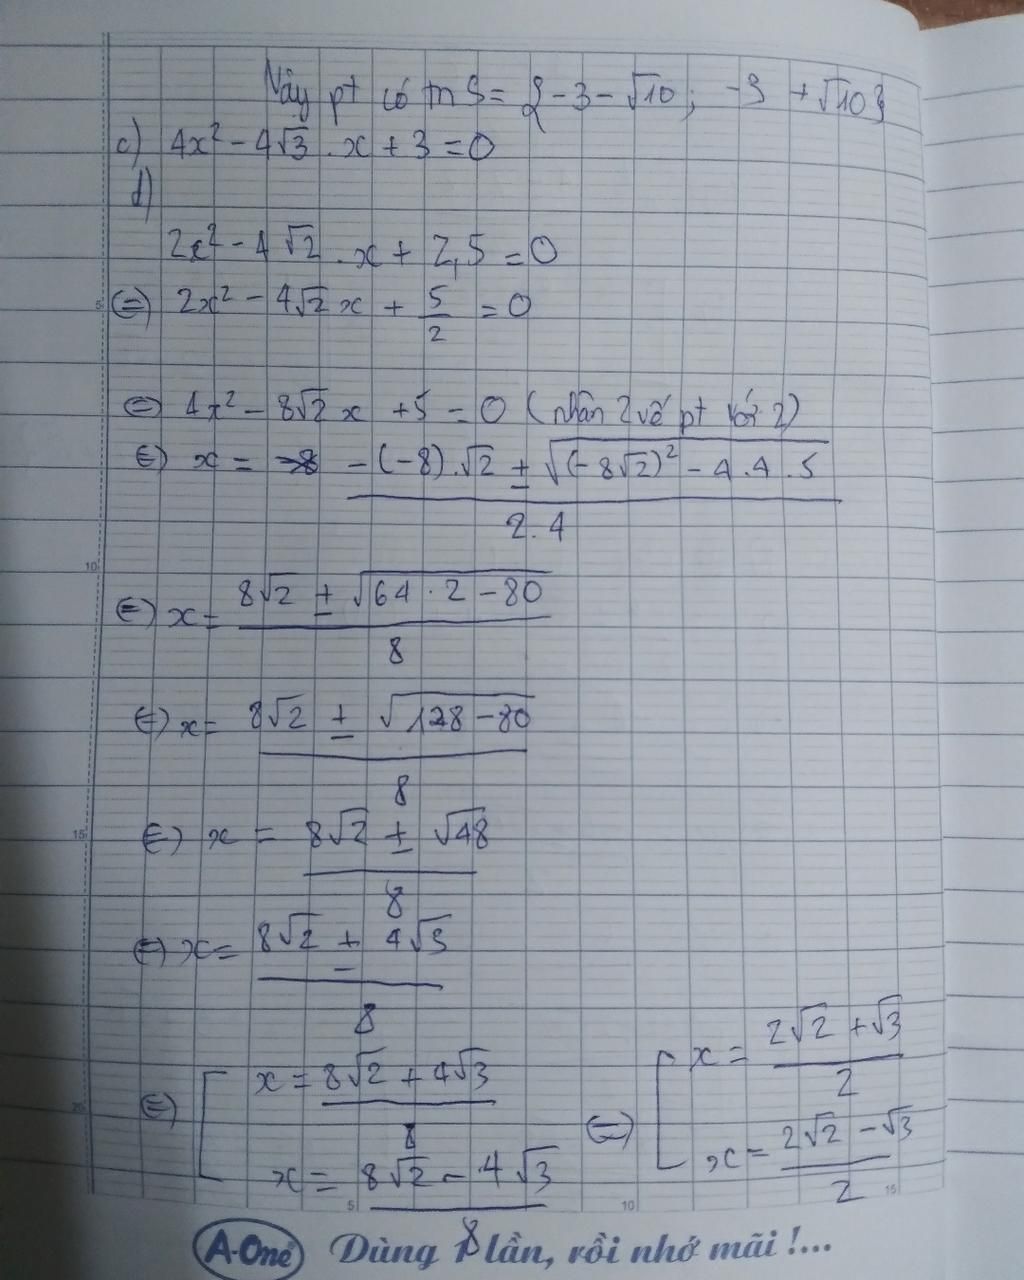 Vậy pt có tn S = {-3-√10; -3 +√10}
c) 4x² - 4√3 . x + 3 = 0
d)
2x² - 4√2 . x + 2,5 = 0
5
⇔) 2x² - 4√2 x + 5/2 = 0
⇔ 4x² - 8√2 x +5 = 0 (nhân 2 vế pt với 2)
⇔) x = (-(-8).√2 ± √((-8√2)² - 4.4.5))/(2.4)
10
⇔) x = (8√2 ± √(64.2 - 80))/8
⇔) x = (8√2 ± √(128 - 80))/8
15
⇔) x = (8√2 ± √48)/8
⇔) x = (8√2 ± 4√3)/8
20
⇔) [ x = (8√2 + 4√3)/8 ⇔) [ x = (2√2 + √3)/2
x = (8√2 - 4√3)/8 x = (2√2 - √3)/2
5 10 15
A-One Dùng 1 lần, rồi nhớ mãi !...